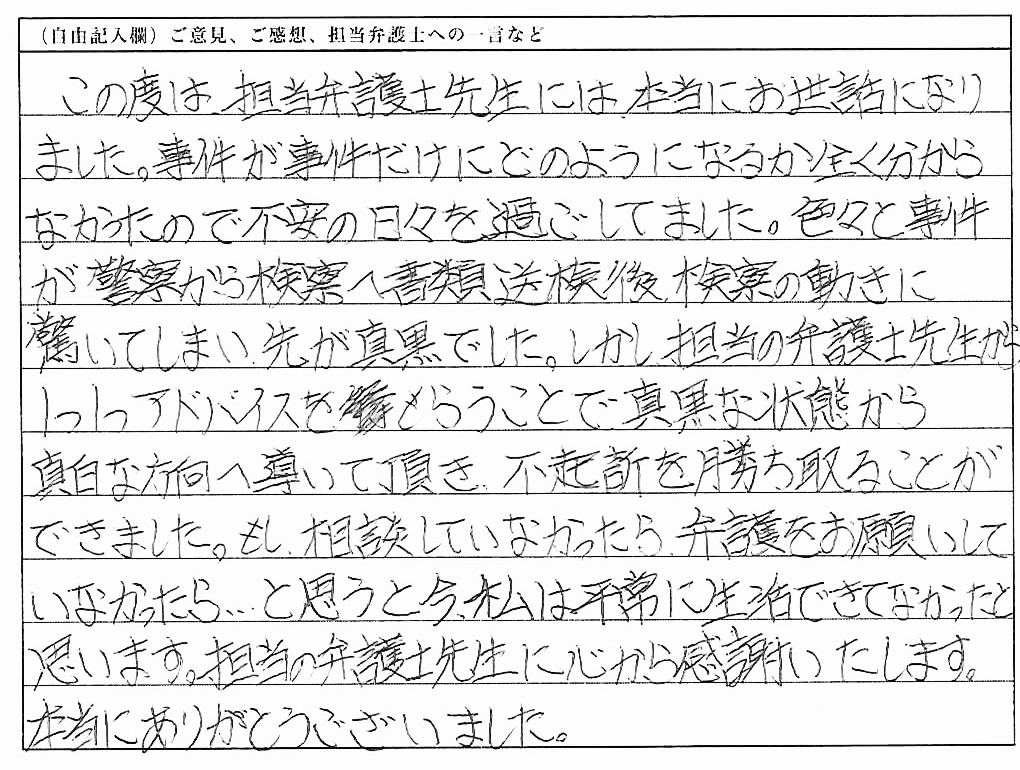 （自由記入欄）ご意見、ご感想、担当弁護士への一言など
この度は、担当弁護士先生には、本当にお世話になり
ました。事件が事件だけにどのようになるか全く分から
なかったので不安の日々を過ごしてました。色々と事件
が警察から検察へ書類送検後、検察の動きに
驚いてしまい、先が真黒でした。しかし、担当の弁護士先生から
1つ1つアドバイスをもらうことで真黒な状態から
真白な方向へ導いて頂き、不起訴を勝ち取ることが
できました。もし、相談していなかったら、弁護をお願いして
いなかったら…と思うと今、私は平常に生活できてなかったと
思います。担当の弁護士先生に心から感謝いたします。
本当にありがとうございました。